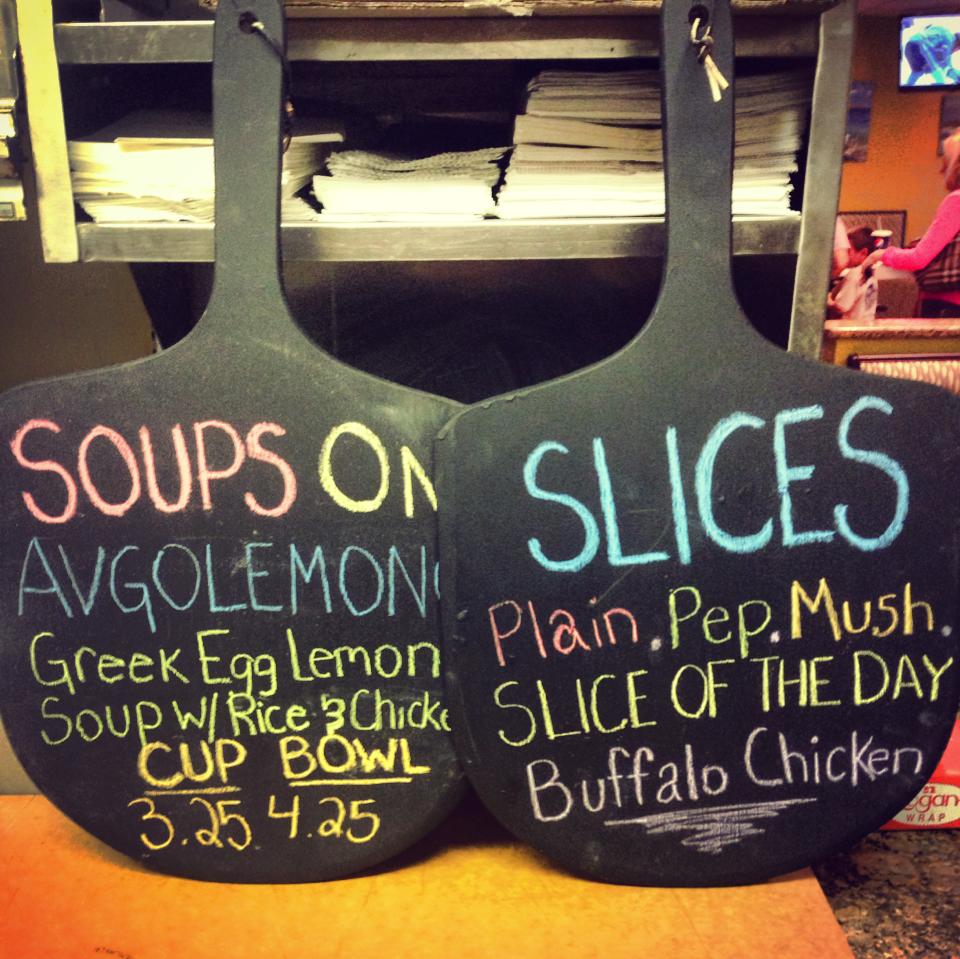 SOUPS ON
AVGOLEMONO
Greek Egg Lemon
Soup W/ Rice & Chicke
CUP BOWL
3.25 4.25
SLICES
Plain. Pep. Mush.
SLICE OF THE DAY
Buffalo Chicken
WRAP